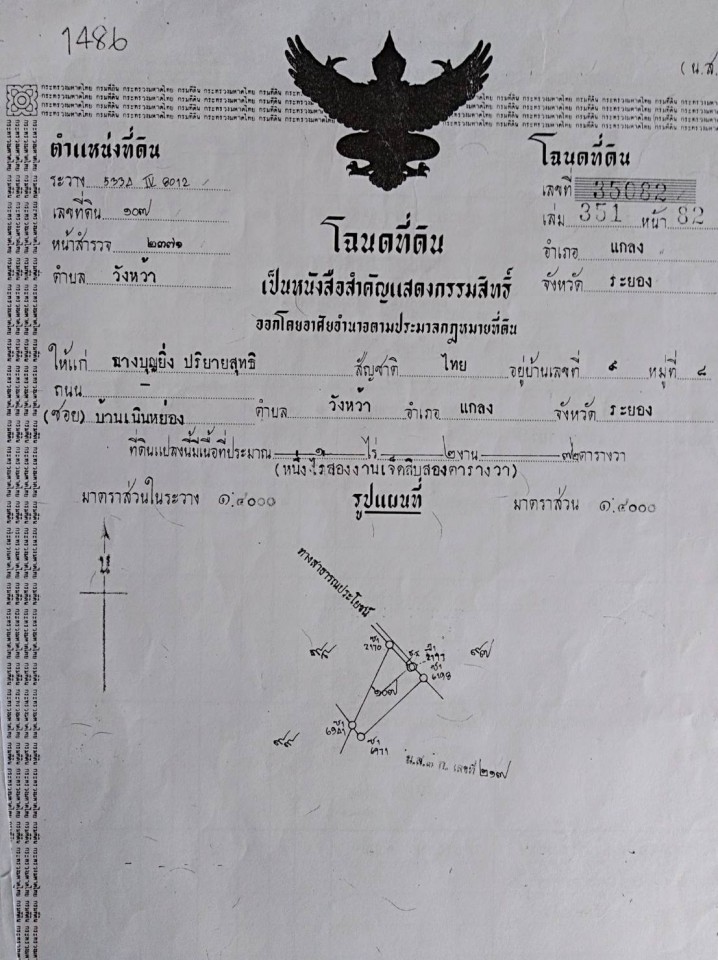 1486
(น.ส.
กระทรวงมหาดไทย กรมที่ดิน
ตำแหน่งที่ดิน
ระวาง 5334 IV 8012
เลขที่ดิน ๑๐๗
หน้าสำรวจ ๒๓๗๑
ตำบล วังหว้า
โฉนดที่ดิน
เลขที่ 35082
เล่ม 351 หน้า 82
อำเภอ แกลง
จังหวัด ระยอง
โฉนดที่ดิน
เป็นหนังสือสำคัญแสดงกรรมสิทธิ์
ออกโดยอาศัยอำนาจตามประมวลกฎหมายที่ดิน
ให้แก่ นางบุญยิ่ง ปริยายสุทธิ สัญชาติ ไทย อยู่บ้านเลขที่ ๙ หมู่ที่ ๘
ถนน –
(ซอย) บ้านเนินหย่อง ตำบล วังหว้า อำเภอ แกลง จังหวัด ระยอง
ที่ดินแปลงนี้มีเนื้อที่ประมาณ ๑ ไร่ ๒ งาน ๗๒ ตารางวา
(หนึ่งไร่สองงานเจ็ดสิบสองตารางวา)
มาตราส่วนในระวาง ๑:๔๐๐๐ รูปแผนที่ มาตราส่วน ๑:๔๐๐๐
น
ทางสาธารณประโยชน์
๙๗
๑๐๗
น.ส.๓ ก. เลขที่ ๒๑๗